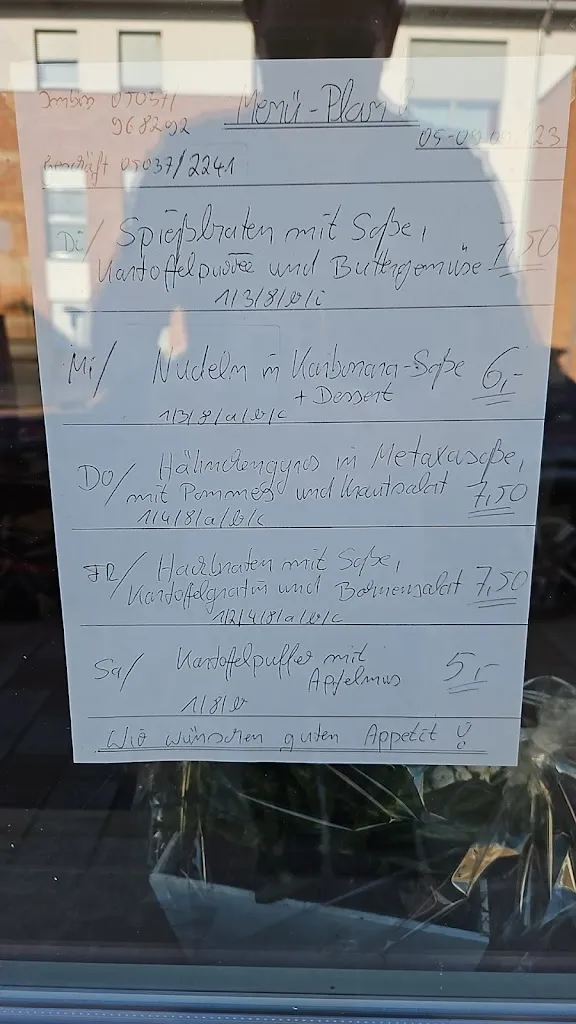 Imbiss 05037/
968292
Menü-Plan!
05-09.09.23
Geschäft 05037/2241
Di/ Spießbraten mit Soße, 7,50
Kartoffelpüree und Buttergemüse
1/3/8/b/i
Mi/ Nudeln in Karbonara-Soße 6,-
+ Dessert
1/3/8/a/b/c
Do/ Hähnchengyros in Metaxasoße,
mit Pommes und Krautsalat 7,50
1/4/8/a/b/c
FR/ Hackbraten mit Soße,
Kartoffelgratin und Bohnensalat 7,50
1/2/4/8/a/b/c
Sa/ Kartoffelpuffer mit 5,-
Apfelmus
1/8/b
Wir wünschen guten Appetit!